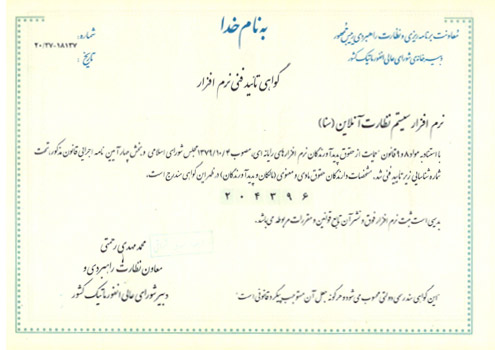 به نام خدا
معاونت برنامه ریزی و نظارت راهبردی رییس جمهور
دبیرخانه ی شورای عالی انفورماتیک کشور
شماره: ۲۰/۲۷-۱۸۱۲۷
تاریخ:
گواهی تائید فنی نرم افزار
نرم افزار سیستم نظارت آنلاین (سنا)
با استناد به مواد ۸ و ۹ قانون "حمایت از حقوق پدیدآورندگان نرم افزارهای رایانه ای، مصوب ۱۳۷۹/۱۰/۴ مجلس شورای اسلامی و بخش چهار آیین نامه اجرایی قانون مذکور، تحت
شماره شناسایی زیر تایید فنی شد. مشخصات دارندگان حقوق مادی و معنوی (مالکان و پدیدآورندگان) در ظهر این گواهی مندرج است.
۲۰۴۳۹۶
بدیهی است ثبت نرم افزار فوق و نشر آن تابع قوانین و مقررات مربوطه می باشد.
محمد مهدی رحمتی
معاون نظارت راهبردی و
دبیر شورای عالی انفورماتیک کشور
"این گواهی سند رسمی دولتی محسوب می شود و هر گونه جعل آن مستوجب پیگرد قانونی است"